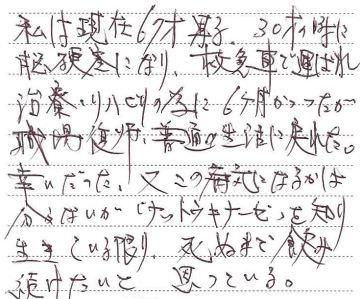 私は現在67才男子、30才の時に
脳硬塞になり、救急車で運ばれ
治療・リハビリの為に6ヶ月かかったが
職場復帰、普通の生活に戻れた。
幸いだった、又この病気になるかは
分らないが「ナットウキナーゼ」を知り
生きている限り、死ぬまで飲み
続けたいと 思っている。